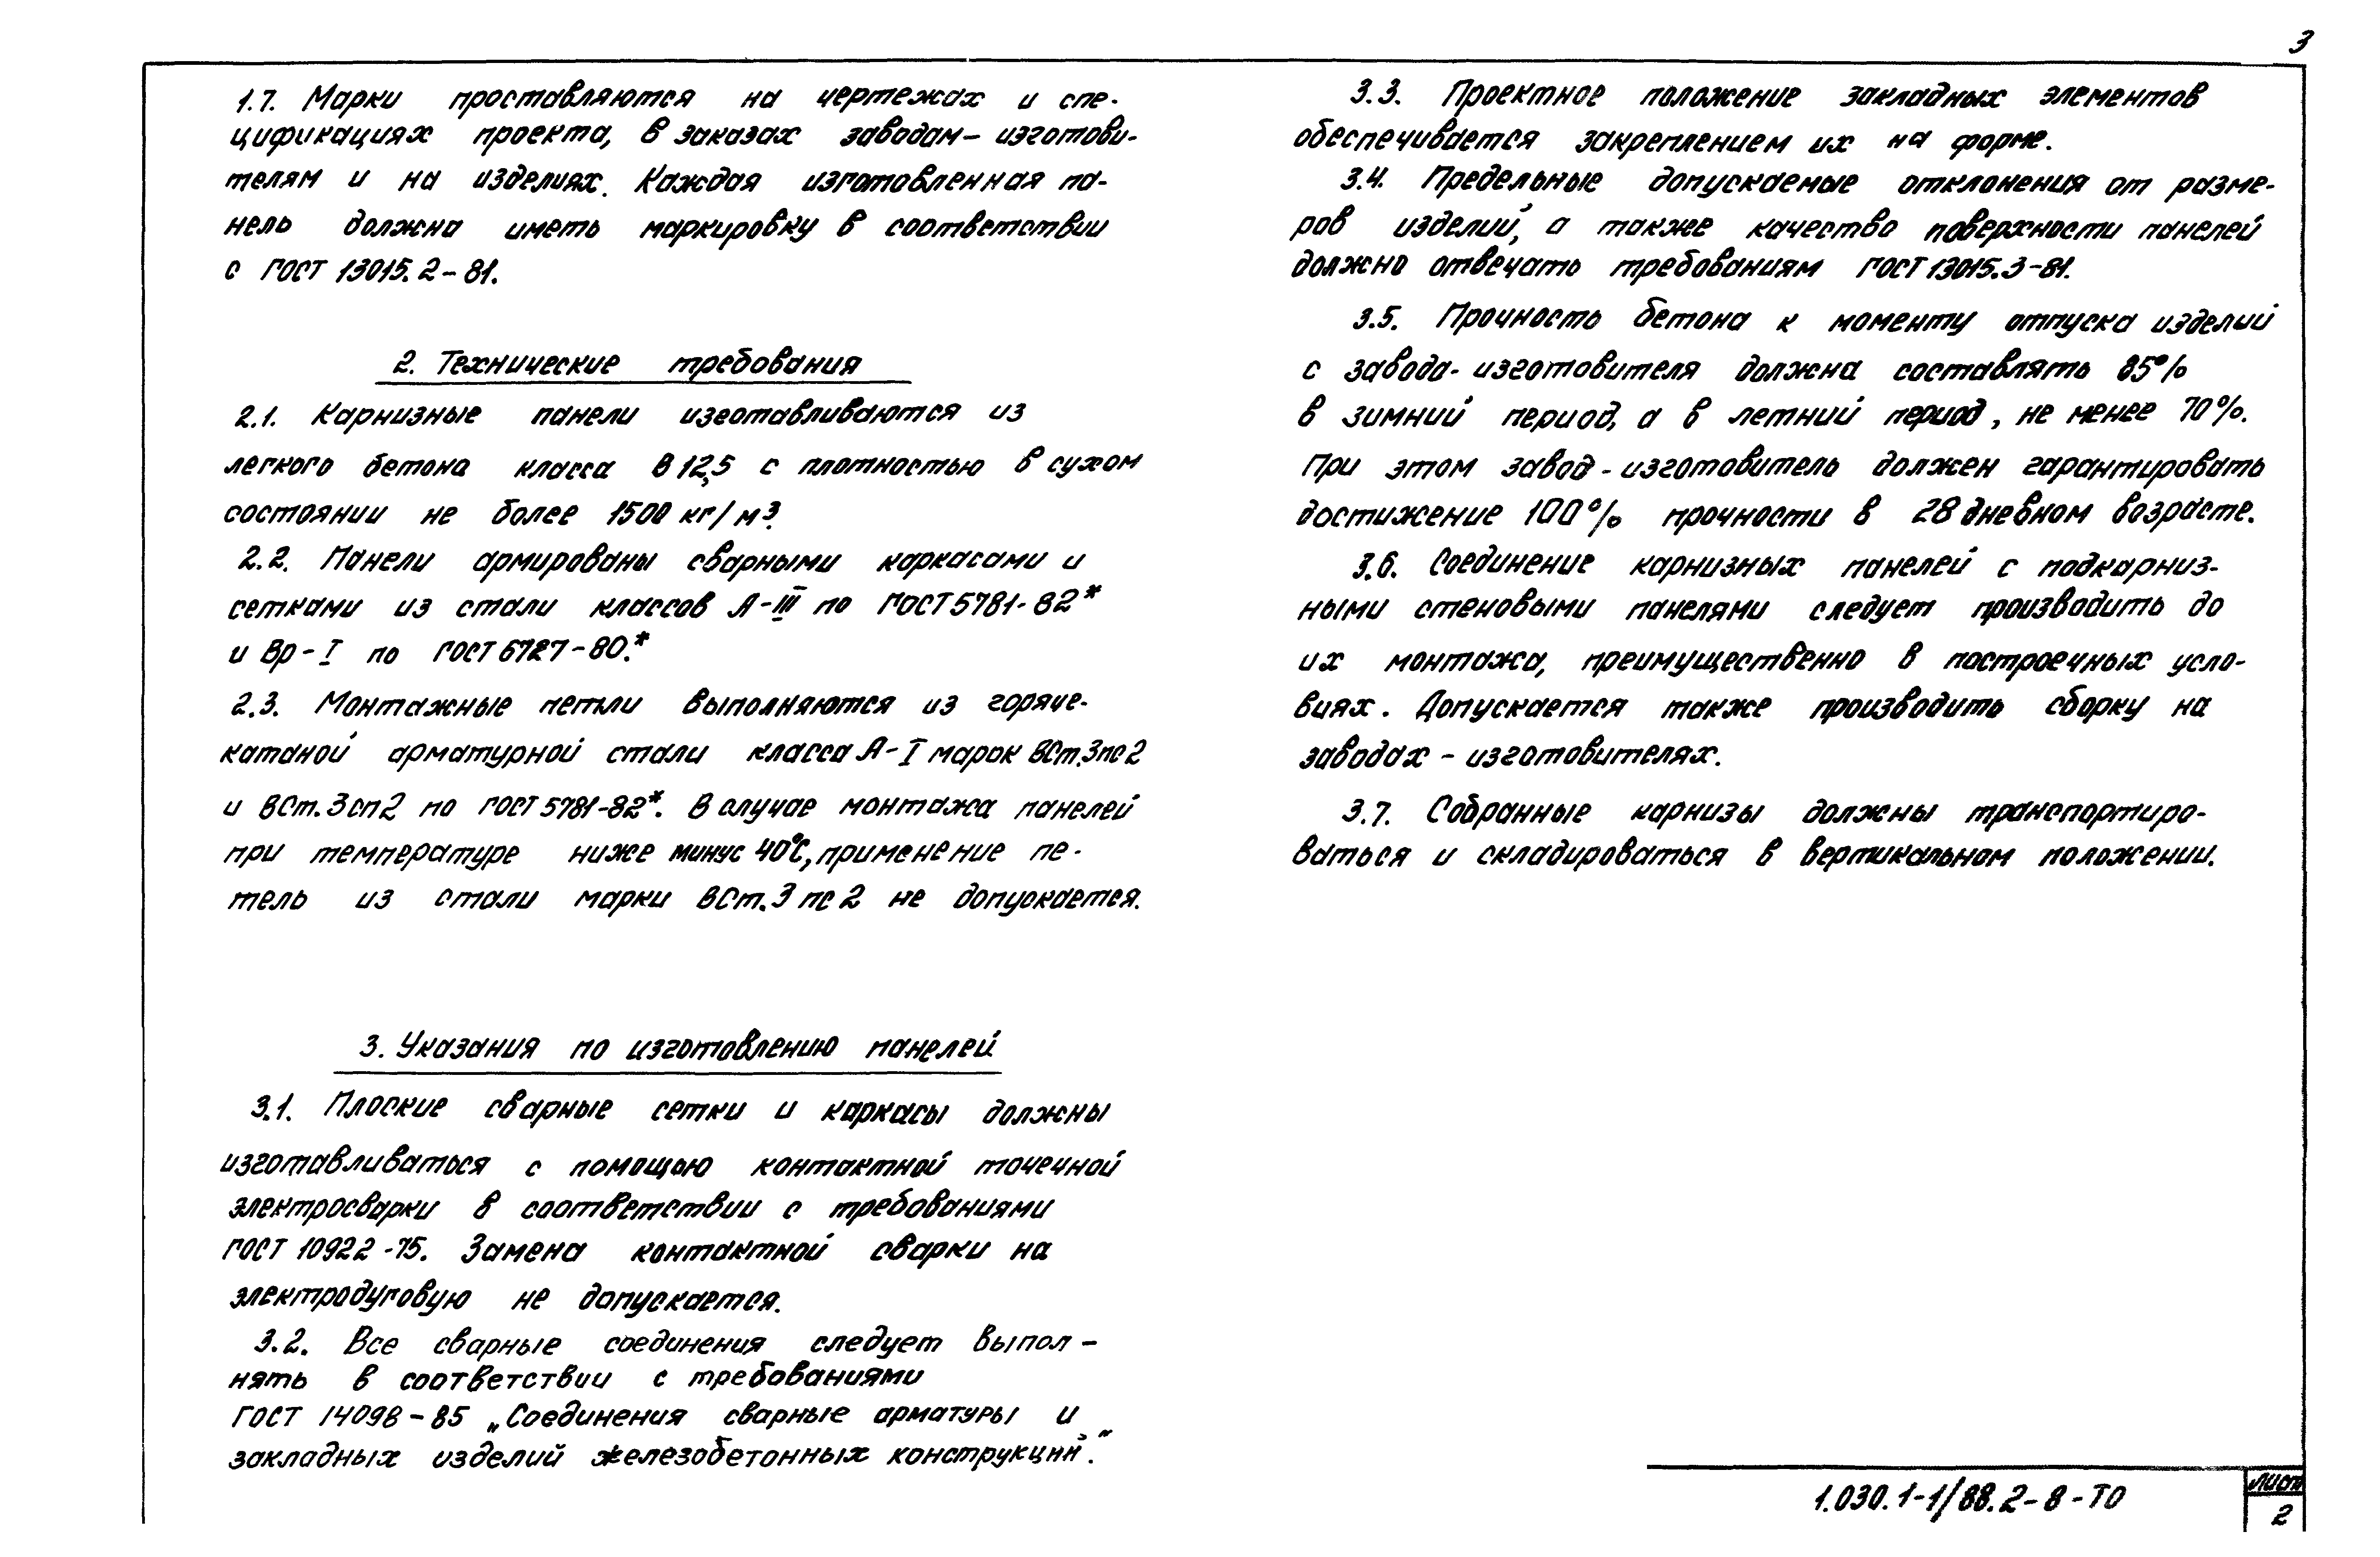 3
1.7. Марки проставляются на чертежах и спе-
цификациях проекта, в заказах заводам-изготови-
телям и на изделиях. Каждая изготовленная па-
нель должна иметь маркировку в соответствии
с ГОСТ 13015.2-81.
2. Технические требования
2.1. Карнизные панели изготавливаются из
легкого бетона класса В 12,5 с плотностью в сухом
состоянии не более 1500 кг/м³.
2.2. Панели армированы сварными каркасами и
сетками из стали классов А-III по ГОСТ 5781-82*
и Вр-I по ГОСТ 6727-80.*
2.3. Монтажные петли выполняются из горяче-
катаной арматурной стали класса А-I марок ВСт.3пс2
и ВСт.3сп2 по ГОСТ 5781-82*. В случае монтажа панелей
при температуре ниже минус 40°С, применение пе-
тель из стали марки ВСт.3 пс2 не допускается.
3. Указания по изготовлению панелей
3.1. Плоские сварные сетки и каркасы должны
изготавливаться с помощью контактной точечной
электросварки в соответствии с требованиями
ГОСТ 10922-75. Замена контактной сварки на
электродуговую не допускается.
3.2. Все сварные соединения следует выпол-
нять в соответствии с требованиями
ГОСТ 14098-85 „Соединения сварные арматуры и
закладных изделий железобетонных конструкций".
3.3. Проектное положение закладных элементов
обеспечивается закреплением их на форме.
3.4. Предельные допускаемые отклонения от разме-
ров изделий, а также качество поверхности панелей
должно отвечать требованиям ГОСТ 13015.3-81.
3.5. Прочность бетона к моменту отпуска изделий
с завода-изготовителя должна составлять 85%
в зимний период, а в летний период, не менее 70%.
При этом завод-изготовитель должен гарантировать
достижение 100% прочности в 28 дневном возрасте.
3.6. Соединение карнизных панелей с подкарниз-
ными стеновыми панелями следует производить до
их монтажа, преимущественно в построечных усло-
виях. Допускается также производить сборку на
заводах-изготовителях.
3.7. Собранные карнизы должны транспортиро-
ваться и складироваться в вертикальном положении.
1.030.1-1/88.2-8-ТО
Лист
2